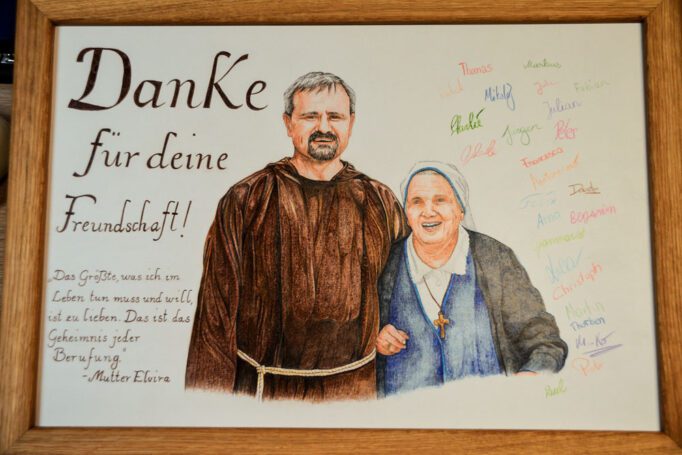 Danke
für deine
Freundschaft!
„Das Größte, was ich im
Leben tun muss und will,
ist zu lieben. Das ist das
Geheimnis jeder
Berufung."
- Mutter Elvira
Thomas
Markus
Mikolaj
Fabian
Julian
Jürgen
Peter
Francesca
Aina
Benjamin
Christoph
Martin
Thorben